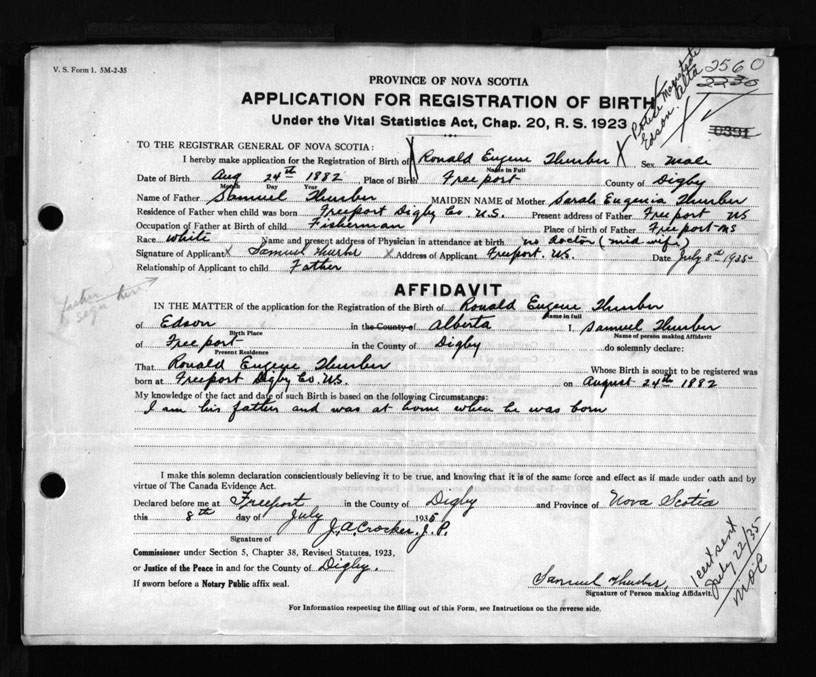 V. S. Form 1. 5M-2-35
PROVINCE OF NOVA SCOTIA
APPLICATION FOR REGISTRATION OF BIRTH
Under the Vital Statistics Act, Chap. 20, R. S. 1923
Police Magistrate
Edson. Alta
2560
2230
0391
TO THE REGISTRAR GENERAL OF NOVA SCOTIA:
I hereby make application for the Registration of Birth of X Ronald Eugene Thurber X Sex male
Name in Full
Date of Birth Aug 24th 1882, Place of Birth Freeport County of Digby
Month Day Year
Name of Father Samuel Thurber MAIDEN NAME of Mother Sarah Eugenia Thurber
Residence of Father when child was born Freeport Digby Co. N.S. Present address of Father Freeport NS
Occupation of Father at Birth of child Fisherman Place of birth of Father Freeport NS
Race White Name and present address of Physician in attendance at birth no doctor (mid wife)
Signature of Applicant X Samuel Thurber X Address of Applicant Freeport. N.S. Date July 8th 1935
Relationship of Applicant to child Father
father
sign here
AFFIDAVIT
IN THE MATTER of the application for the Registration of the Birth of Ronald Eugene Thurber
Name in full
of Edson in the County of Alberta I, Samuel Thurber
Birth Place Name of person making Affidavit
of Freeport in the County of Digby do solemnly declare:
Present Residence
That Ronald Eugene Thurber Whose Birth is sought to be registered was
born at Freeport Digby Co. N.S. on August 24th 1882
My knowledge of the fact and date of such Birth is based on the following Circumstances:
I am his father and was at home when he was born
I make this solemn declaration conscientiously believing it to be true, and knowing that it is of the same force and effect as if made under oath and by
virtue of The Canada Evidence Act.
Declared before me at Freeport in the County of Digby and Province of Nova Scotia
this 8th day of July 1935
J.A. Crocker. J.P.
Signature of
Commissioner under Section 5, Chapter 38, Revised Statutes, 1923,
or Justice of the Peace in and for the County of Digby.
If sworn before a Notary Public affix seal.
Samuel Thurber
Signature of Person making Affidavit.
1 cert sent
July 22/35
For Information respecting the filling out of this Form, see Instructions on the reverse side.